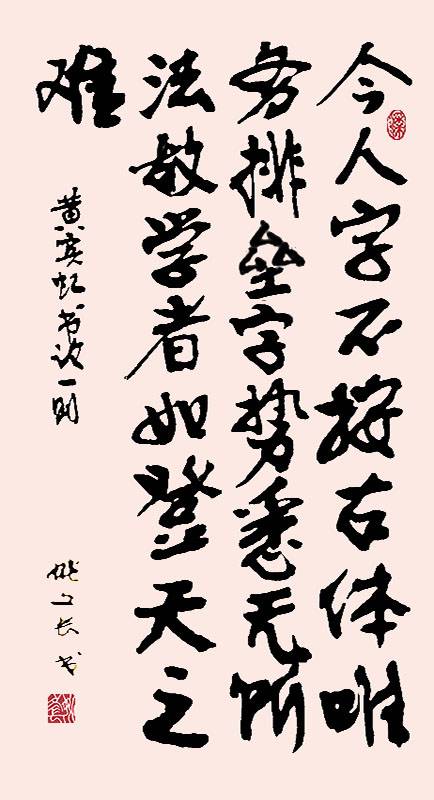 今人字不按古体唯
务排垒字势悉无所
法教学者如登天之
难
黄宾虹书论一则
姚文长书